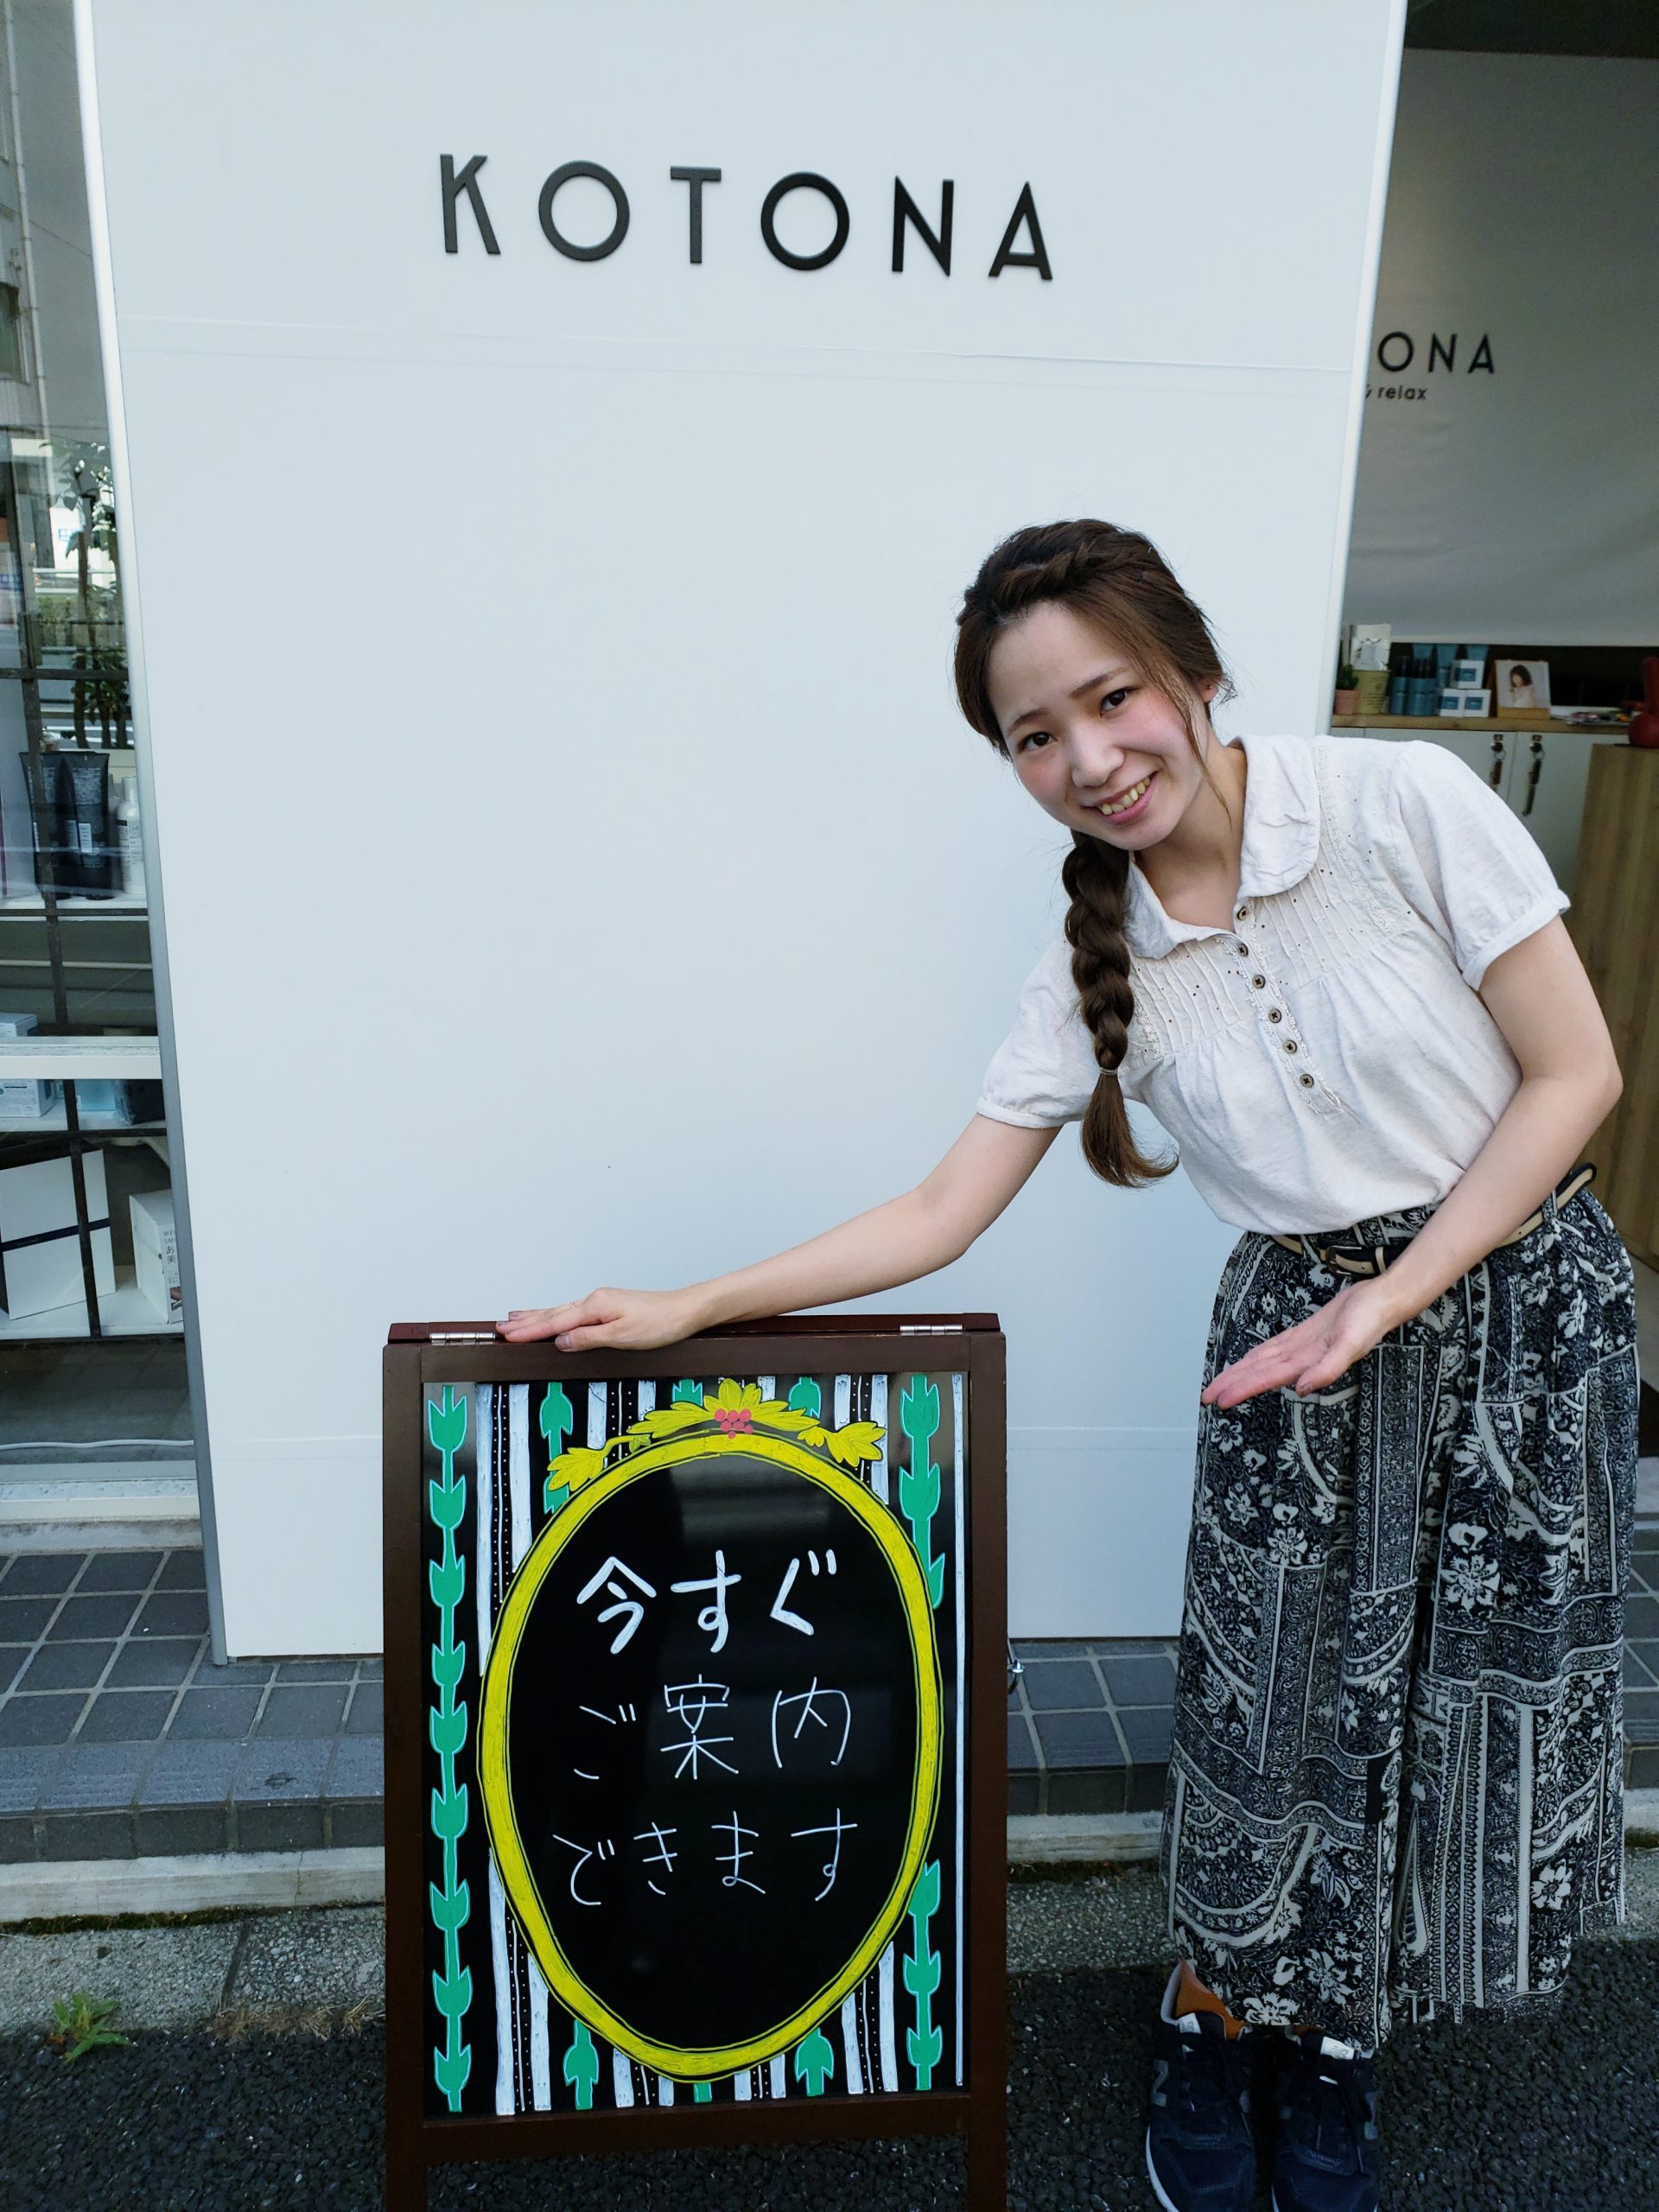 KOTONA
ONA
relax
今すぐ
ご案内
できます